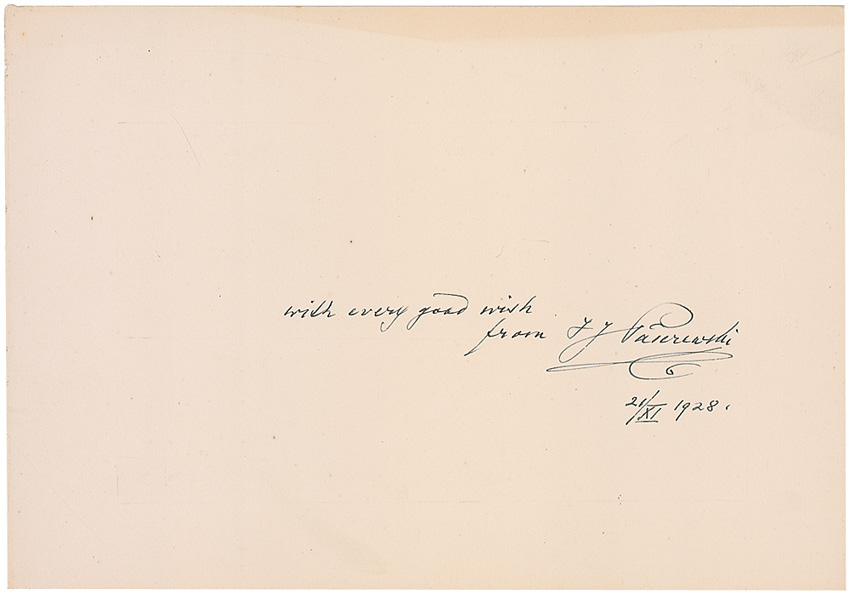 with every good wish
from
21/XI 1928.